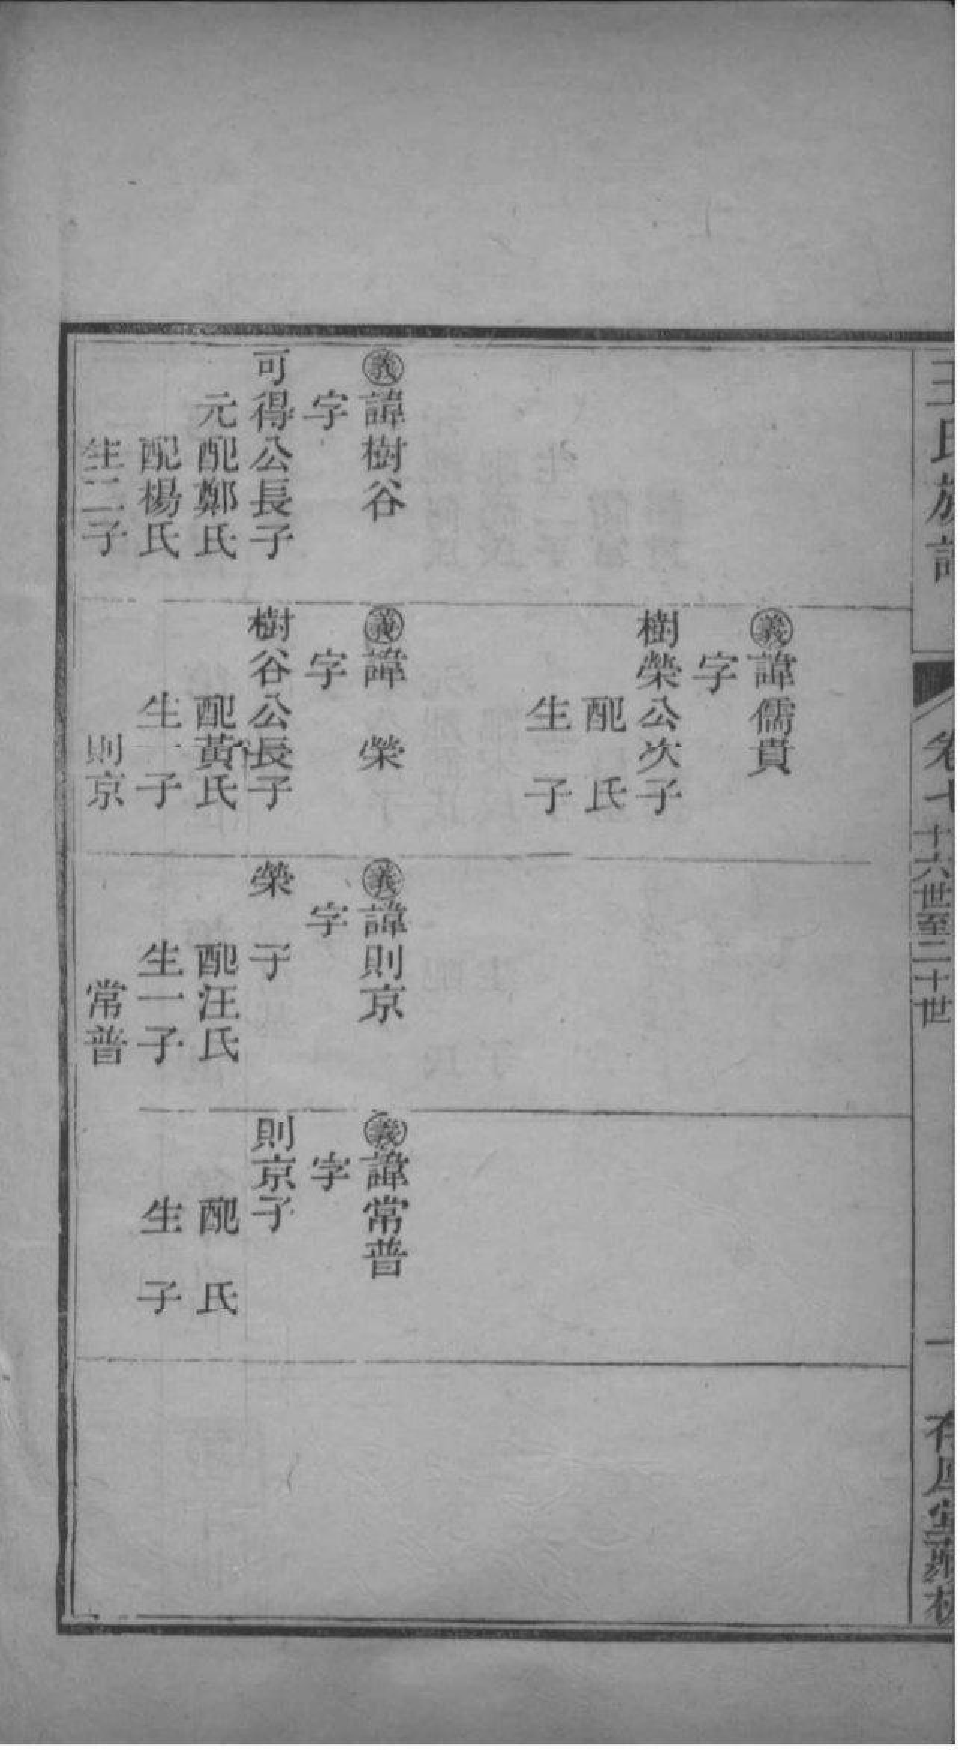 王氏族譜
卷七
十六世至二十世
一
㊕諱樹谷
字
可得公長子
元配鄭氏
配楊氏
生二子
義諱儒貴
字
樹榮公次子
配 氏
生 子
義諱 榮
字
樹谷公長子
配黃氏
生一子
則京
義諱則京
字
榮 子
配汪氏
生一子
常普
義諱常普
字
則京子
配 氏
生 子